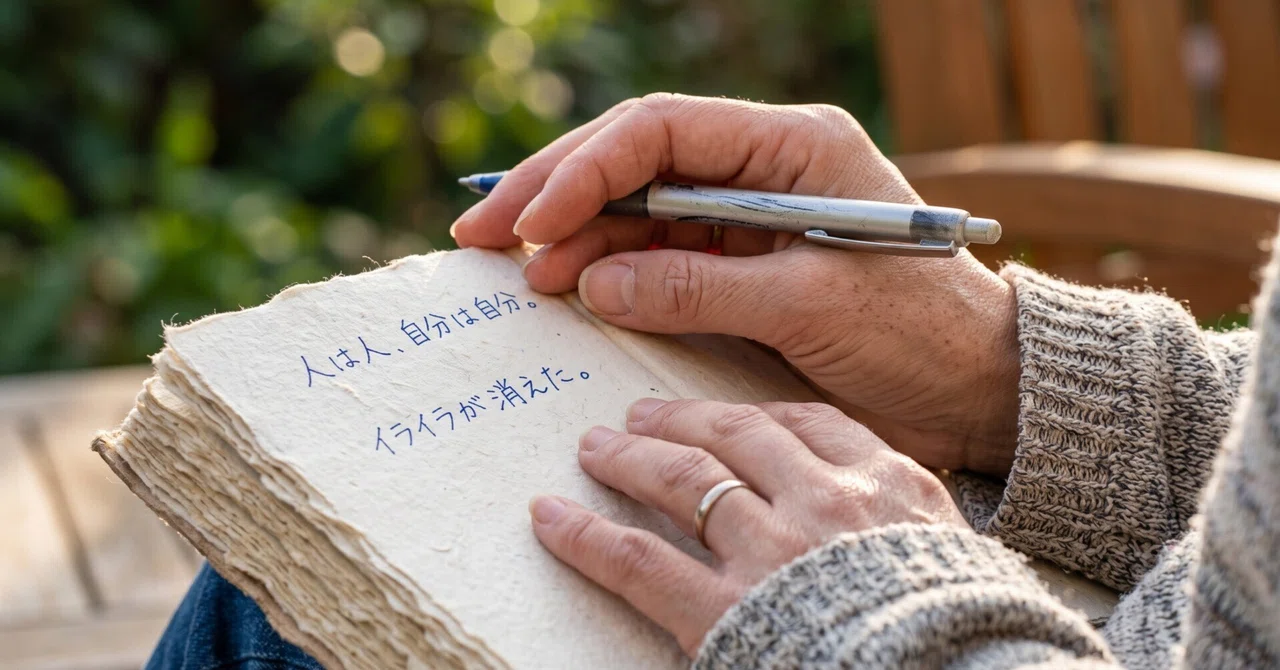 人は人、自分は自分。
イライラが消えた。